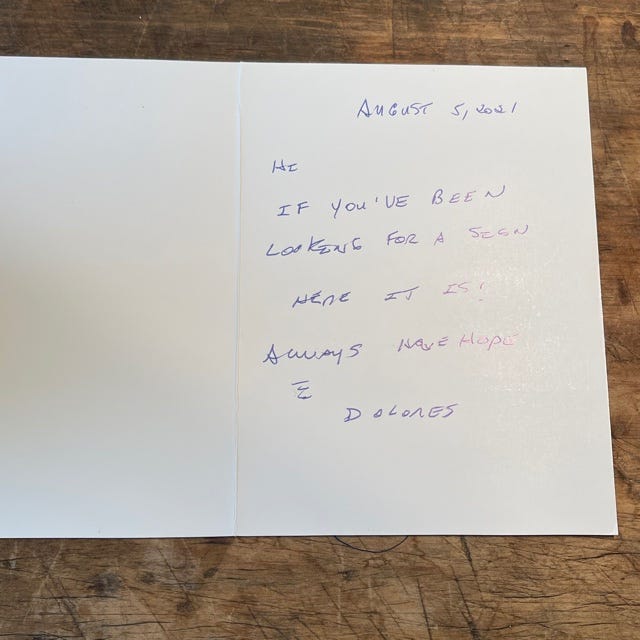 AUGUST 5, 2021
HI
IF YOU'VE BEEN
LOOKING FOR A SIGN
HERE IT IS!
ALWAYS HAVE HOPE
DOLORES